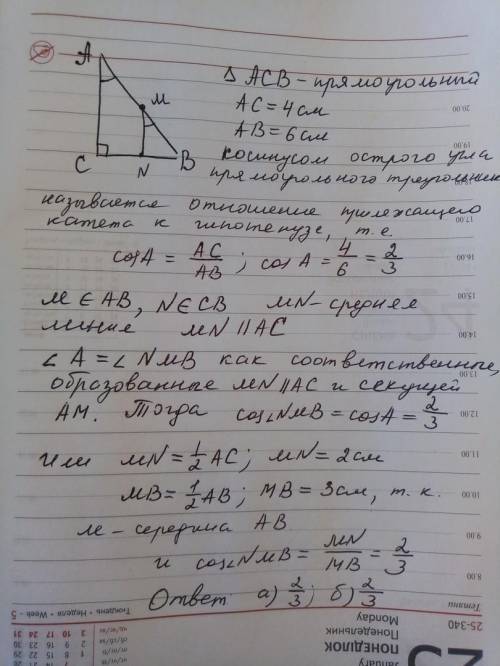 A
M
C
N
B
Δ ACB – прямоугольный
AC = 4 см
AB = 6 см
косинусом острого угла
прямоугольного треугольника
называется отношение прилежащего
катета к гипотенузе, т.е.
cos A = AC/AB ; cos A = 4/6 = 2/3
M ∈ AB, N ∈ CB MN – средняя
линия MN || AC
∠A = ∠NMB как соответственные,
образованные MN || AC и секущей
AM. Тогда cos∠NMB = cos A = 2/3
Или MN = 1/2 AC; MN = 2 см
MB = 1/2 AB; MB = 3 см, т.к.
M – середина AB
и cos∠NMB = MN/MB = 2/3
Ответ а) 2/3; б) 2/3
20.00
19.00
18.00
17.00
16.00
15.00
14.00
13.00
12.00
11.00
10.00
9.00
8.00
Тетяни
25-340
Monday
Понедельник
ПОНЕДІЛОК
January
Тиждень • Неделя • Week - 5